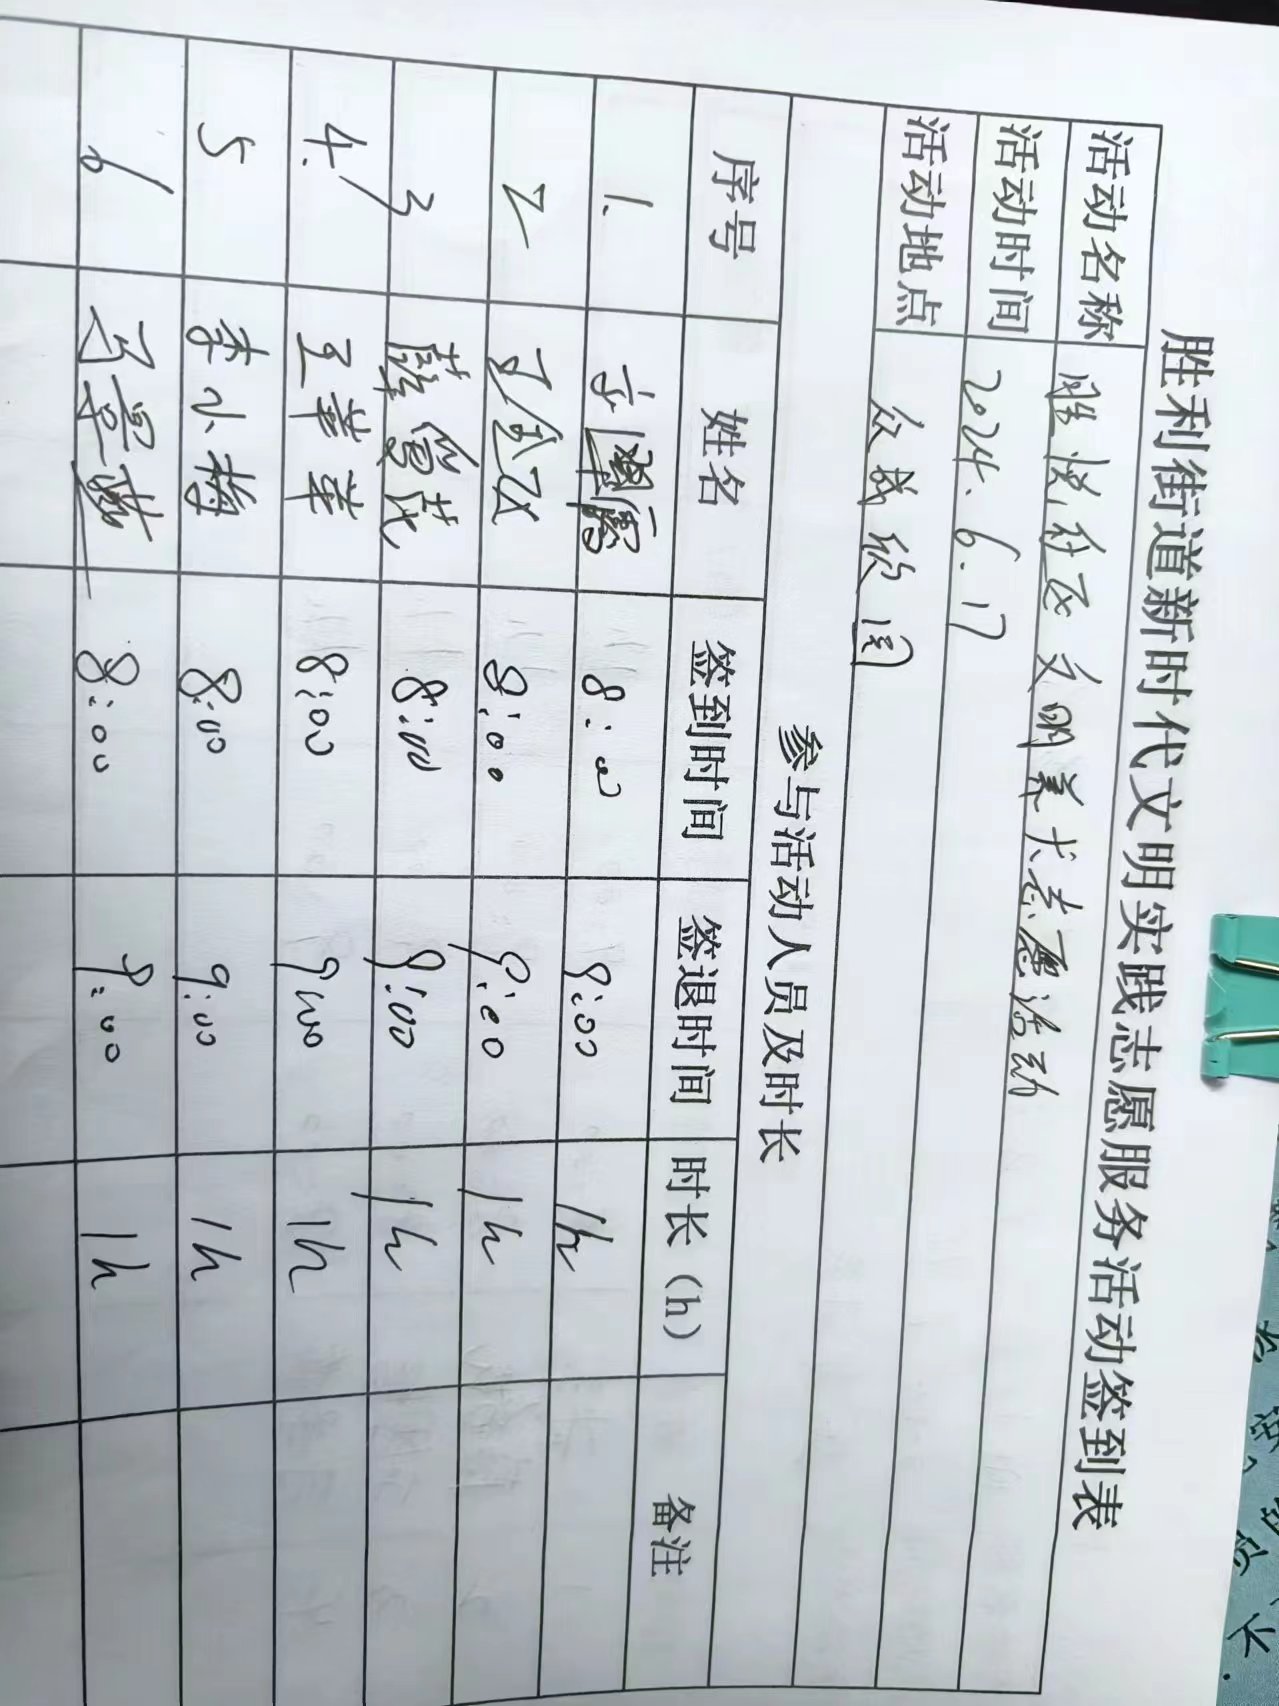 胜利街道新时代文明实践志愿服务活动签到表
活动名称 胜悦社区文明养犬志愿活动
活动时间 2024.6.17
活动地点 众成欣园
参与活动人员及时长
序号 姓名 签到时间 签退时间 时长（h） 备注
1. 8:00 9:00 1h
2 8:00 9:00 1h
3 8:00 9:00 1h
4. 王苹苹 8:00 9:00 1h
5 李小梅 8:00 9:00 1h
6 8:00 9:00 1h